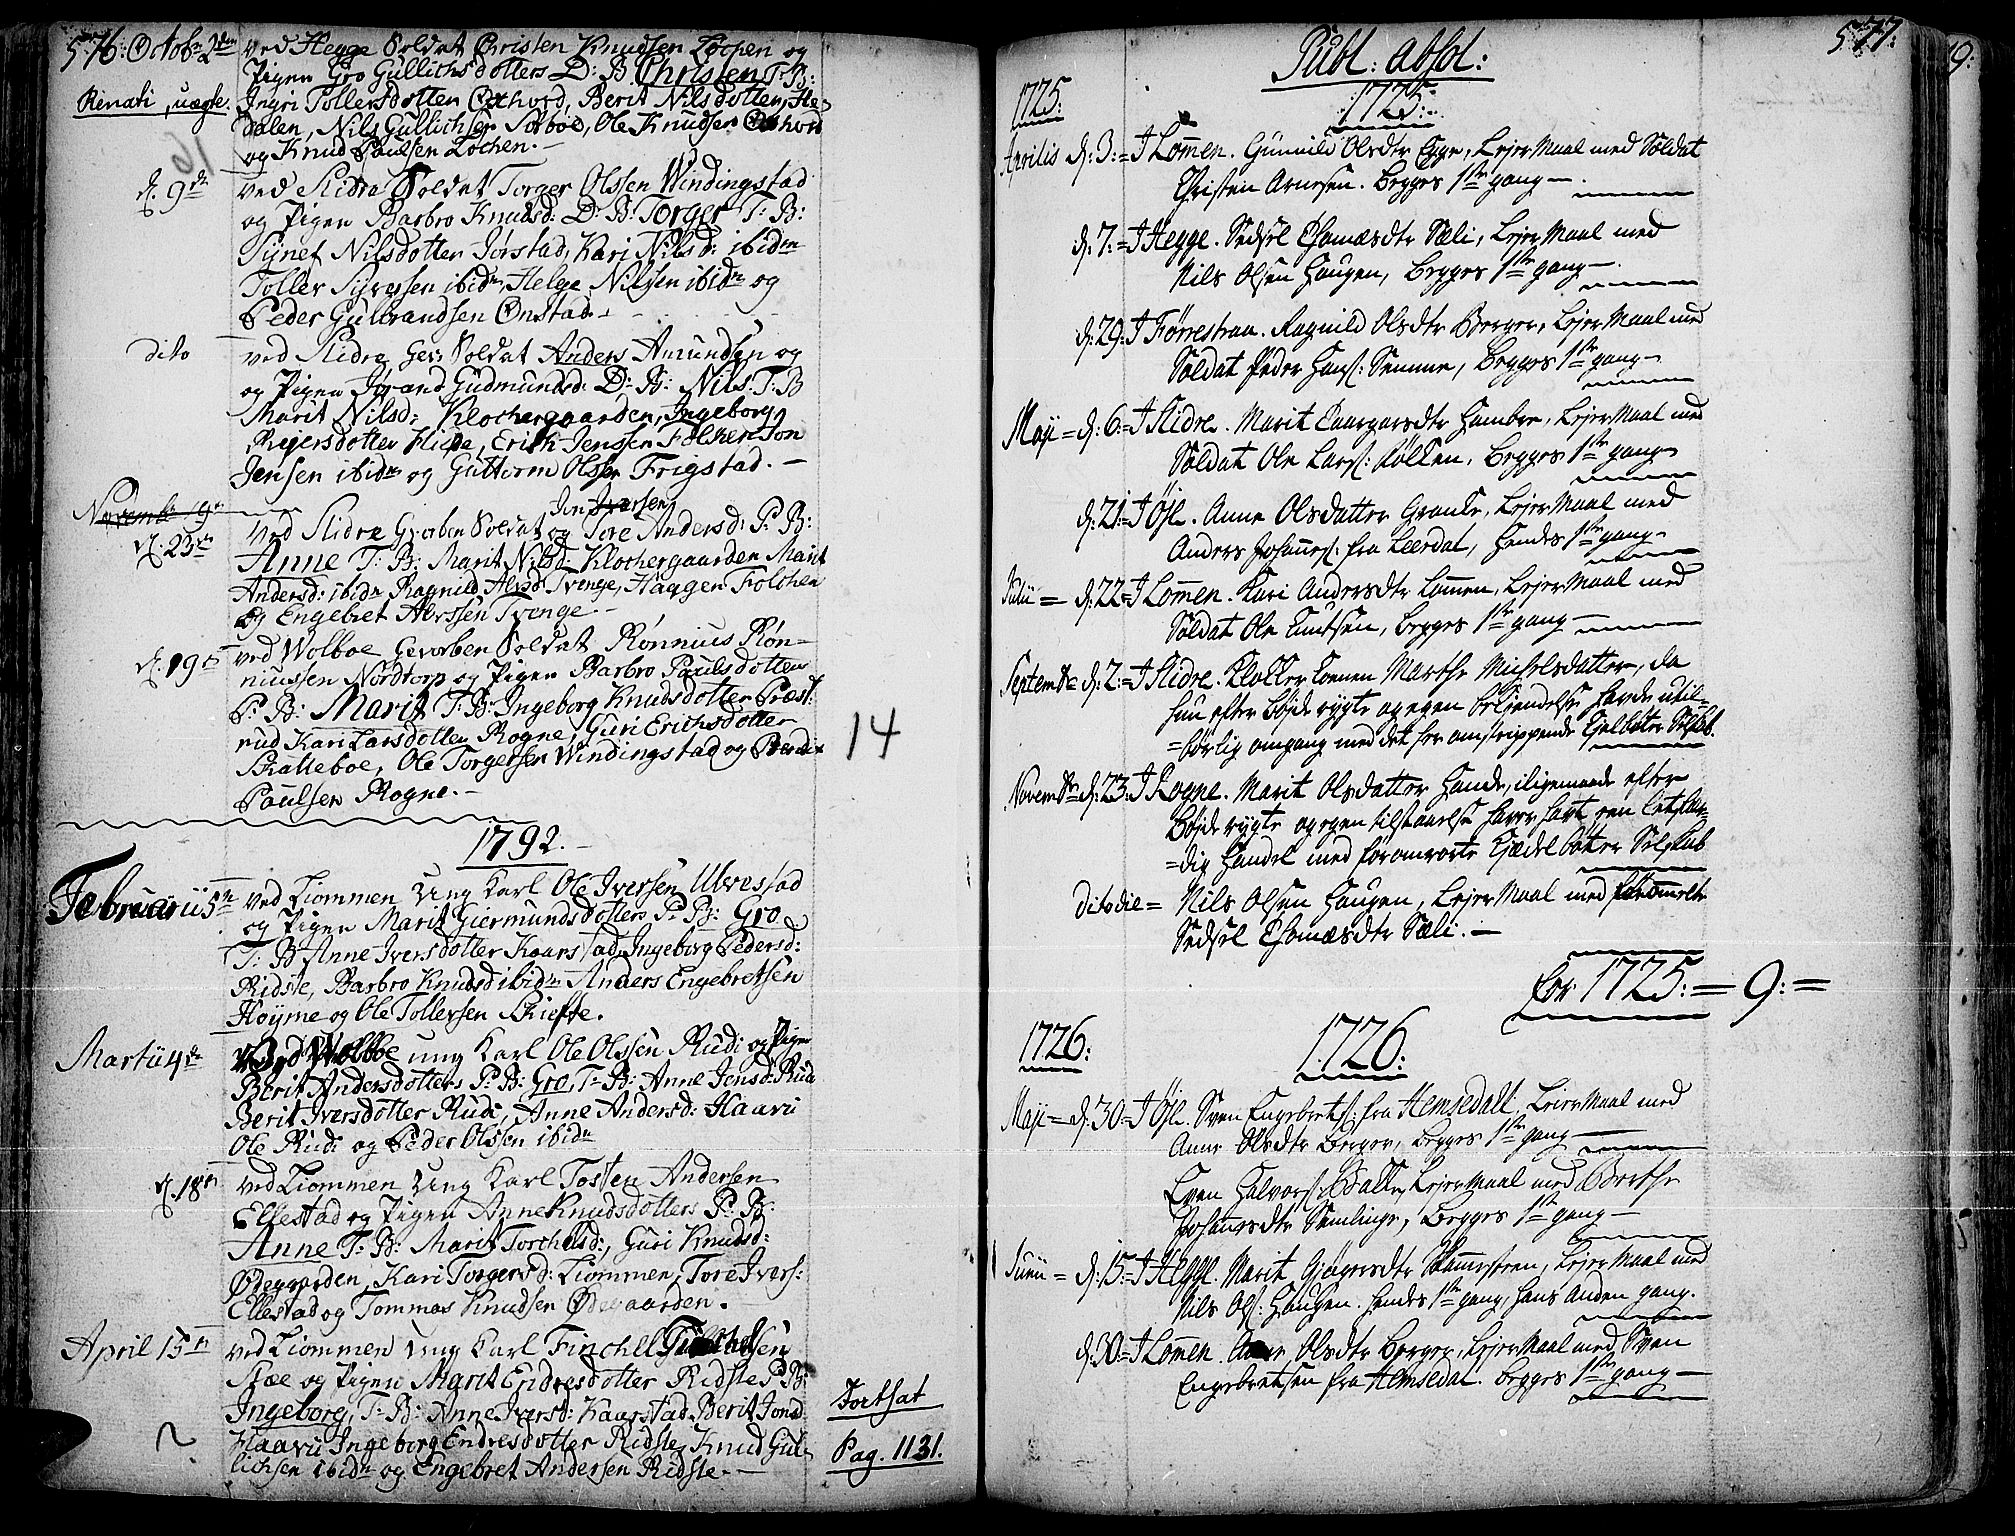 576. Octob: 2den ved Hegge Soldat Christen Knudsen Lochen og
Pigen Gro Gullichsdotters D: B: Christen T: B:
Renati, uægte. Ingri Tollersdotter Østhord, Berit Nilsdotter, He-
dalen, Nils Gullichsen Sørboe, Ole Knudsen Østhord
og Knud Paulsen Lochen.—
16
d. 9de ved Slidre Soldat Torger Olssen Windingstad
og Pigen Barbro Knudsd: D: B: Torger T: B:
Synet Nilsdotter Jørstad, Kari Nilsd: ibidm
Toller Siversen ibidm, Helge Nilsen ibidm og
Peder Gulbrandsen Onstad.
dito ved Slidre Gev: Soldat Anders Amundsen og
og Pigen Jørand Gudmundsd: D: B: Nils T: B
Marit Nilsd: Klochergaarden, Ingeborg
Reyersdotter Hiepe, Erich Jenssen Folchen Jon
Jensen ibidm og Guttorm Olsen Frigstad.—
Jen Iversen
Novembr 9n
d. 23de ved Slidre Gvorben Soldat og Tore Andersd: P: B:
Anne T: B: Marit Nilsd: Klochergaarden Marit
Andersd: ibidm Ragnild Alvsd Tvenge, Haagen Folchen
Og Engebret Alvssen Tvenge—
d. 19de ved Wolboe Gevorben Soldat Rønnius Røn-
niussen Nordtorp og Pigen Barbro Paulsdotters
P: B: Marit T: B: Ingeborg Knudsdotter Præst-
rud Kari Larsdotter Rogne, Guri Erichsdotter
Schatteboe, Ole Torgersen Windingstad og Bendix
Paulsen Rogne.—
14
1792.—
Februarii 5te ved Liommen Ung Karl Ole Iversen Ulvestad
og Pigen Marit Giermundsdotters P: B: Gro
T: B Anne Iversdotter Kaarstad, Ingeborg Pedersd:
Ridste, Barbro Knudsd ibidm Anders Engebretsen
Høyme og Ole Tollersen Skiefte.
Martii 4de Ved Wolboe ung Karl Ole Olssen Rudi og Pigen
Berit Andersdotters P: B: Gro T: B: Anne Jensd: Rudi
Berit Iversdotter Rudi, Anne Andersd: Haavii
Ole Rudi og Peder Olssen ibidm
d. 18de ved Liommen Ung Karl Tosten Andersen
Ellestad og Pigen Anne Knudsdotters P: B:
Anne T: B: Marit Torchelsd:, Guri Knudsd:
Ødegaarden, Kari Torgersd: Liommen, Tore Ivers:
Ellestad og Tommas Knudsen Ødegaarden.
April 15de ved Liommen Ung Karl Finchell
Støe og Pigen Marit Endresdotter Ridste P: B:
Ingeborg, T: B: Anne Iversd: Kaarstad, Berit Jonsd
Haavii Ingeborg Endresdotter Ridste, Knud Gul-
lichsen ibidm og Engebret Andersen Ridste.—
Fortsat
Pag. 1131.
577.
Publ: absol:
1725: 1725:
Aprilis d. 3: = I Lomen. Gunnild Olsdtr Egge, Lejermaal med Soldat
Christen Arnesen. Begges 1ste gang—
d. 7: = I Hegge. Sedsel Thomæsdtr Sæli, Lejermaal med
Nils Olsen Haugen, Begges 1ste gang—
d. 29: I Førrestraa. Ragnild Olsdtr Berger, Lejermaal med
Soldat Peder Hans: Semme, Begges 1ste gang—
Maji = d. 6: = I Slidre. Marit Laagarsdtr Hambre, Lejermaal med
Soldat Ole Lars: Kølken, Begges 1ste gang—
d. 21: I Øjl. Anne Olsdatter Grande, Lejermaal med
Anders Johannes: fra Leerdal, Hendes 1ste gang—
Julii = d. 22 = I Lomen. Kari Andersdtr Lomen, Lejermaal med
Soldat Ole Knutsen, Begges 1ste gang—
Septembr d. 2: = I Slidre. Klokker konen Marthe Michelsdatter, da
hun efter Bøjde rygte og egen bekiendelse havde util-
=børlig omgang med det her omstrippende Kjelbøter Selskab.
Novembr d. 23: I Rogne. Marit Olsdatter Hande, iligemaade efter
Bøjde rygte og egen tilstaaelse haver havt een letfær-
=dig handel med foromrørte Kjædelbøtter Selskab
Dito die = Nils Olsen Haugen, Lejermaal med foromrørte
Sedsel Thomæsdtr Sæli.—
for 1725: = 9: =
1726: 1726:
Maji = d. 30 = I Øjl. Sven Engebrets: fra Hemsedall Lejermaal med
Anne Olsdtr Berger, Begges 1ste gang—
Even Halvors: Bakke, Lejermaal med Berthe
Johannesdtr Semlinge, Begges 1ste gang—
Junii = d. 15 = I Hegge. Marit Gjøgersdtr Hammersteen, Lejermaal med
Nils Ols: Haugen. Hendes 1ste gang, hans Anden gang.
d. 30: I Lomen. Anne Olsdtr Berger, Lejermaal med Sven
Engebretsen fra Hemsedal. Begges 1ste gang—